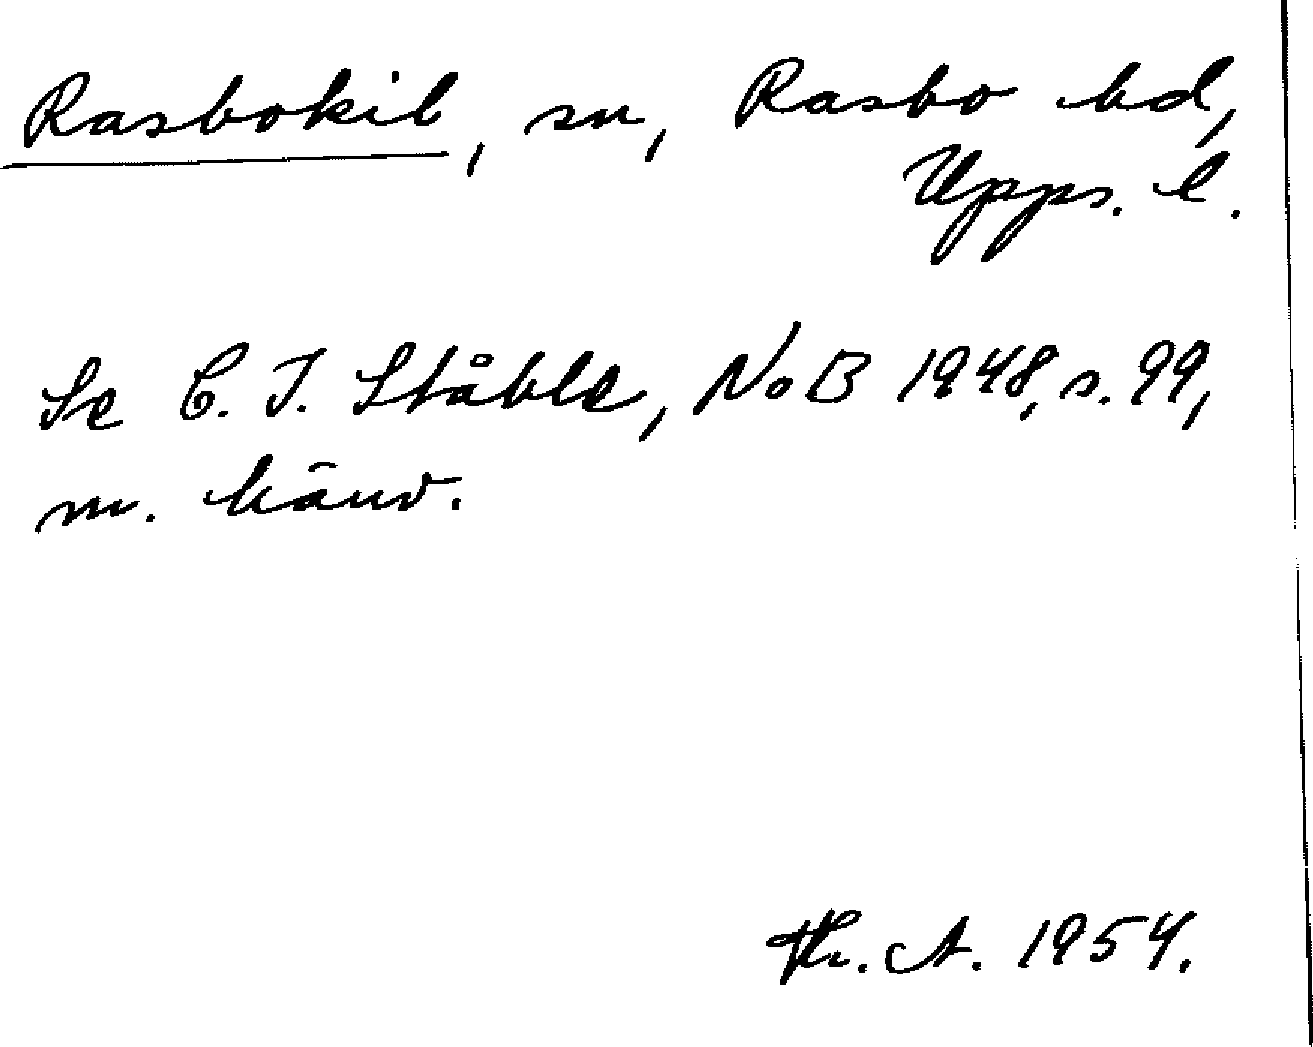 Rasbokil, sn, Rasbo hd,
Upps. l.
Se C. I. Ståhle, NoB 1948, s. 99,
m. hänv.
Th. A. 1954.